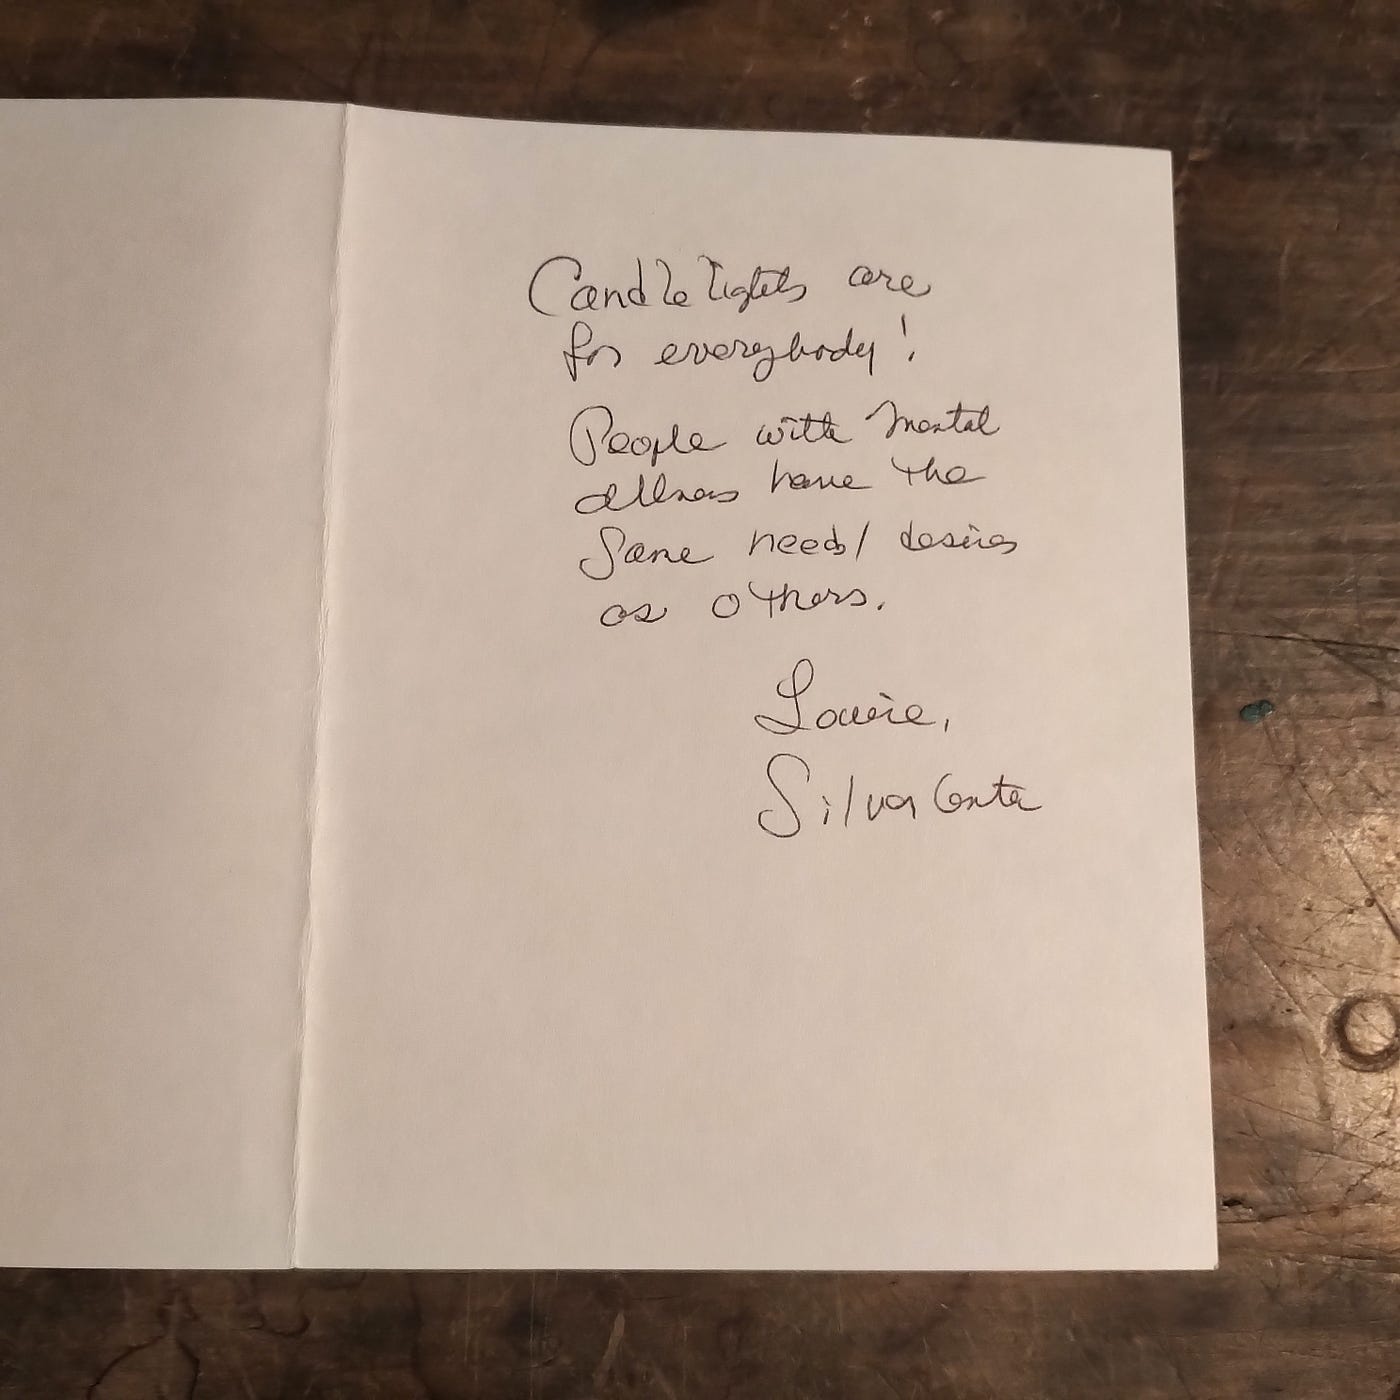 Candle lights are
for everybody!
People with mental
illness have the
same needs/ desires
as others.
Louise,
Silver Center